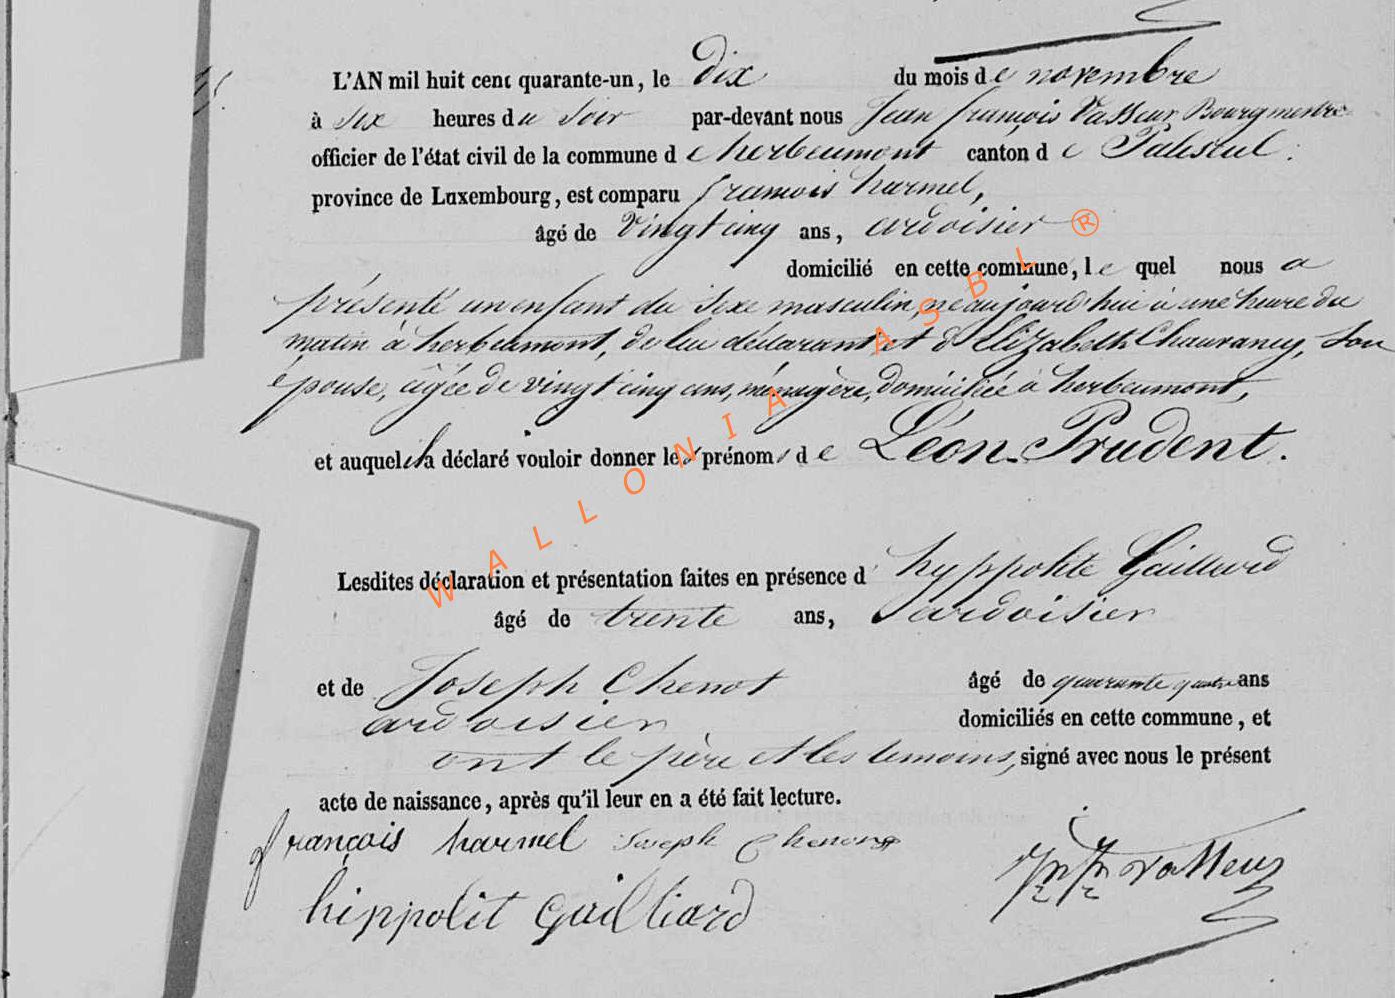 L'AN mil huit cent quarante-un, le dix du mois de novembre
à six heures du soir par-devant nous Jean françois Vasseur Bourgmestre
officier de l'état civil de la commune de herbeumont canton de Paliseul.
province de Luxembourg, est comparu francois harmel,
âgé de vingt cinq ans, ardoisier
domicilié en cette commune, le quel nous a
présenté un enfant du sexe masculin, né aujourd'hui à une heure du
matin à herbeumont, de lui déclarant et d'Elizabeth Chauvancy, son
épouse, agée de vingt cinq ans, ménagère, domiciliée à herbeumont,
et auquel il a déclaré vouloir donner les prénoms de Léon-Prudent.
Lesdites déclaration et présentation faites en présence d'hyppolite Gaillard
âgé de trente ans, ardoisier
et de Joseph Chenot âgé de quarante quatre ans
ardoisier domiciliés en cette commune, et
ont le père et les temoins, signé avec nous le présent
acte de naissance, après qu'il leur en a été fait lecture.
françois harmel Joseph Chenot
hippolit Gailliard Vasseur
WALLONIA ASBL ®